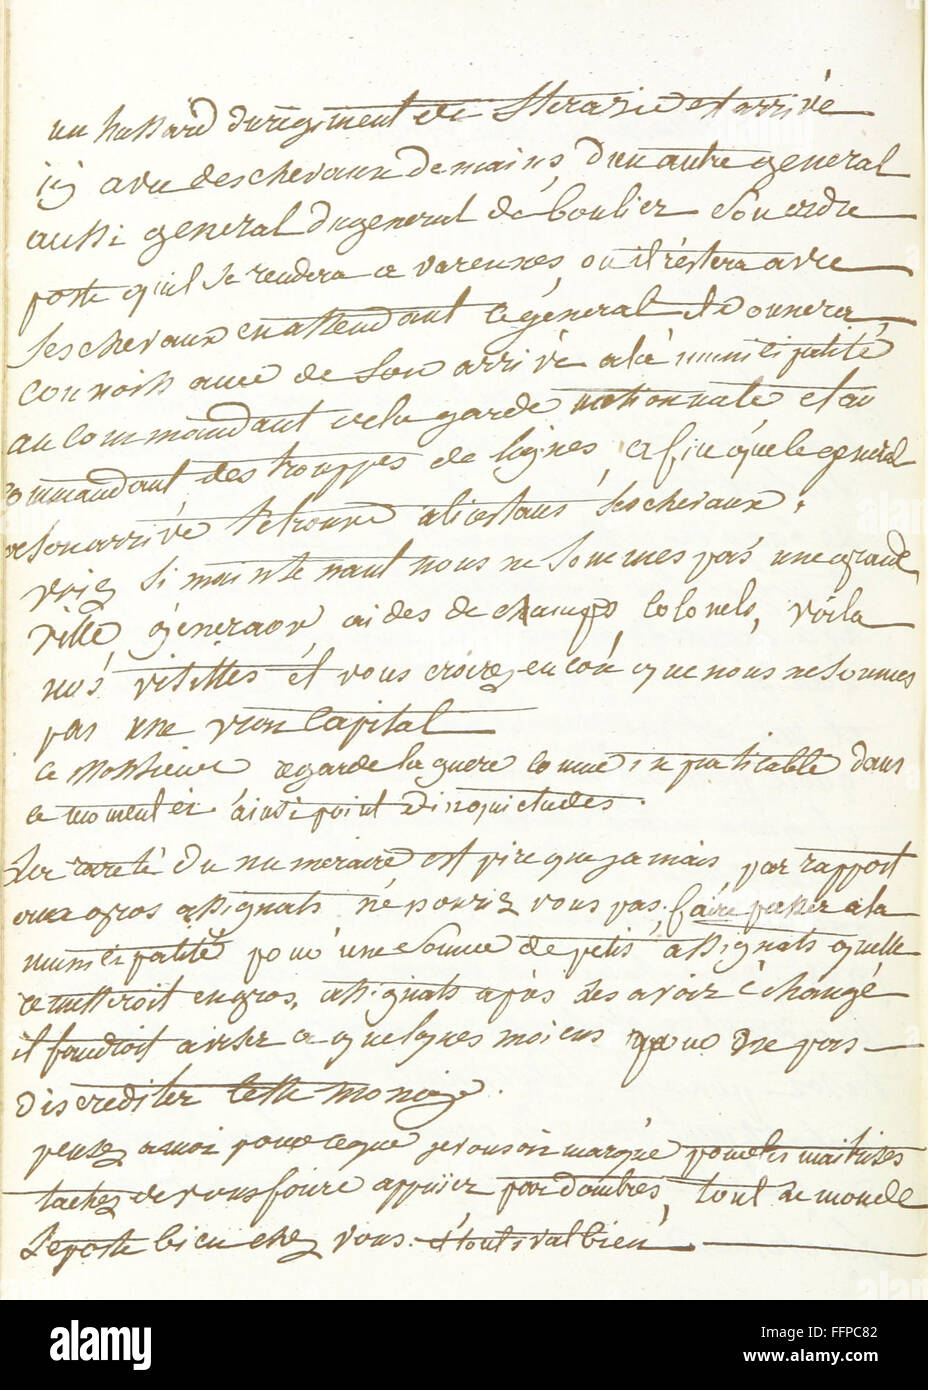 un hussard du regiment de Sterasie est arrivé
icy avec des chevaux de mains, d'un autre general
aussi general du general de boulier son ordre
porte qu'il se rendera a varennes, ou il restera avec
ses chevaux en attendant ce général et donnera
connoissance de son arrivé a la municipalité
au commandant de la garde nationnale et au
commandant des trouppes de lignes, afin que le general
a son arrivé trouve a l'instant ses chevaux.
voiez si maintenant nous ne sommes pas une grande
ville, generaux aides de champs colonels, voila
nos visittes et vous croirez encor que nous ne sommes
pas une vray Capital
ce Monsieur regarde la guere comme inpraticable dans
ce moment ci ainsi point d'inquietudes.
La rareté du numeraire est pire que jamais par rapport
aux gros assignats ne pouriez vous pas faire passer a la
municipalité pour une somme de petis assignats qu'elle
remetteroit en gros, assignats après les avoir échangé
il faudroit aviser a quelques moiens pour ne pas
discrediter cette monoie.
pensez a moi pour ce que je vous ai marqué pour les maitrises
tachez de vous faire appuier par dombres, tout le monde
se porte bien chez vous. et tout va bien
alamy
FFPC82
www.alamy.com